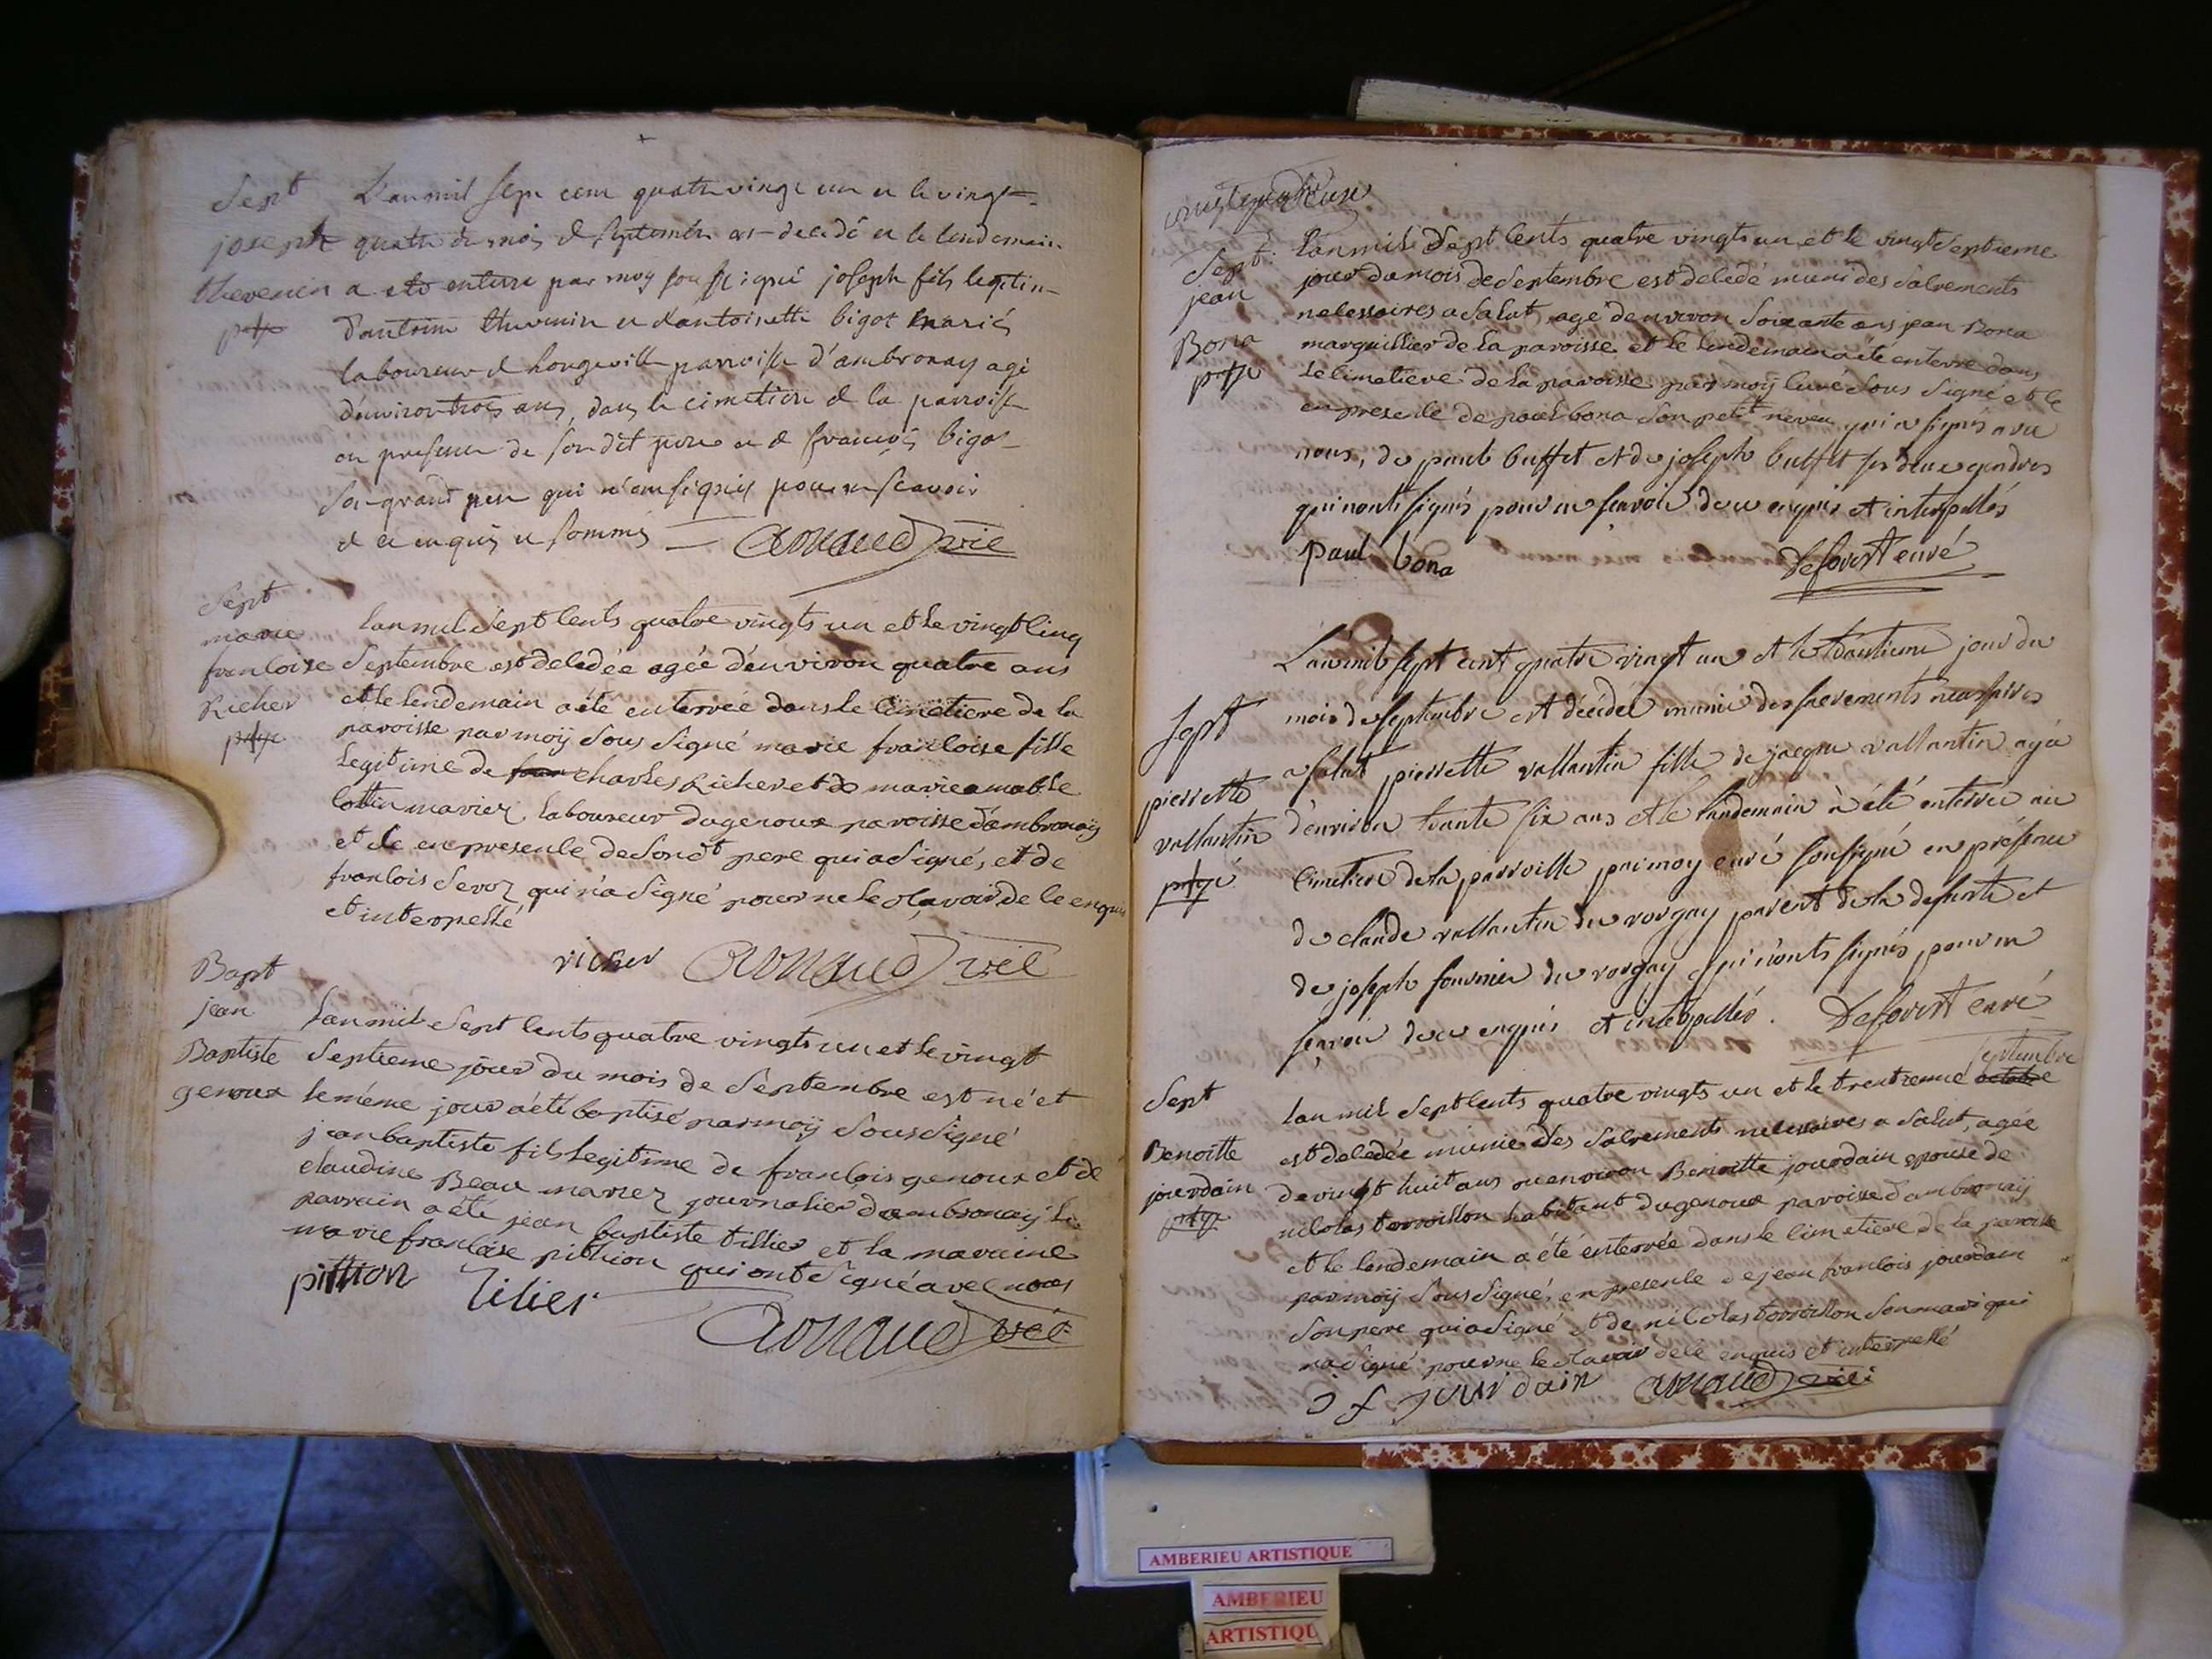 Sept L'an mil sept cent quatre vingt un et le vingt
joseph quatre du mois de septembre est decedé et le lendemain
thevenin a eté enterré par moy soussigné joseph fils legitime
ptye d'antoine thevenin et d'antoinette bigot mariés
laboureur de hongeville parroisse d'ambronay agé
d'environ trois ans, dans le cimetiere de la parroisse
en presence de son dit pere et de françois bigot
son grand pere qui n'ont signés pour ne scavoir
de ce enquis et sommés Arnaud vic
Sept
marie Lan mil sept cents quatre vingts un et le vingt cinq
francoise Septembre est decedée agée d'environ quatre ans
Richer et le lendemain a été enterrée dans le cimetiere de la
ptye paroisse par moÿ sous signé marie francoise fille
legitime de charles Richer et de marie amable
cottin mariez laboureur dugenoux paroisse d'ambronaÿ
et ce en presence de son dt pere qui a signé, et de
francois Sevoz qui n'a signé pour ne le sçavoir de ce enquis
et interpellé
richer Arnaud vic
Bapt
jean Lan mil Sept cents quatre vingts un et le vingt
Baptiste Septieme jour du mois de Septembre est né et
genoux le même jour a été baptisé par moÿ Sous Signé
jean baptiste fils legitime de francois genoux et de
claudine Beau mariez journalier d'ambronaÿ le
parrain a été jean baptiste tillier et la maraine
marie francoise pithion qui ont Signé avec nous
pithion Tilier
Arnaud vic
Sept. Lan mil Sept Cents quatre vingts un et le vingt Septieme
jean jour du mois de Septembre est decedé muni des Sacrements
necessaires a Salut agé d'environ Soixante ans jean Bona
Bona marguillier de la paroisse et le lendemain a été enterré dans
ptye le cimetiere de la paroisse par moÿ curé Sous Signé et ce
en presence de paul bona Son petit neveu qui a signés avec
nous, de paul buffet et de joseph buffet ses deux gendres
qui n'onts signés pour ne sçavoir de ce enquis et interpellés
paul bona Deforest curé
L'an mil sept cent quatre vingt un et le trantieme jour du
Sept mois de septembre est décédée munie des sacrements necessaires
a salut pierrette vallantin fille de jacque vallantin agée
pierrette d'environ trante six ans et le landemain à été enterrée au
vallantin cimetiere de la parroisse par moy curé soussigné en présence
ptye de claude vallantin du vorgay parent de la defunte et
de joseph fournier du vorgay qui n'onts signés pour ne
sçavoir de ce enquis et interpellés. Deforest curé
septembre
Sept Lan mil Sept cents quatre vingts un et le trentieme octobre
Benoitte est decedée munie des Sacrements necessaires a Salut, agée
jourdain de vingt huit ans ou environ Benoitte jourdain epouse de
ptye nicolas torroillon habitant dugenoux paroisse d'ambronaÿ
et le lendemain a été enterrée dans le cimetiere de la paroisse
par moÿ Sous Signé, en presence de jean francois jourdain
Son pere qui a Signé et de nicolas torroillon Son mari qui
n'a Signé pour ne le Sçavoir de ce enquis et interpellé
J f jourdain Arnaud vic
AMBERIEU ARTISTIQUE
AMBERIEU
ARTISTIQU